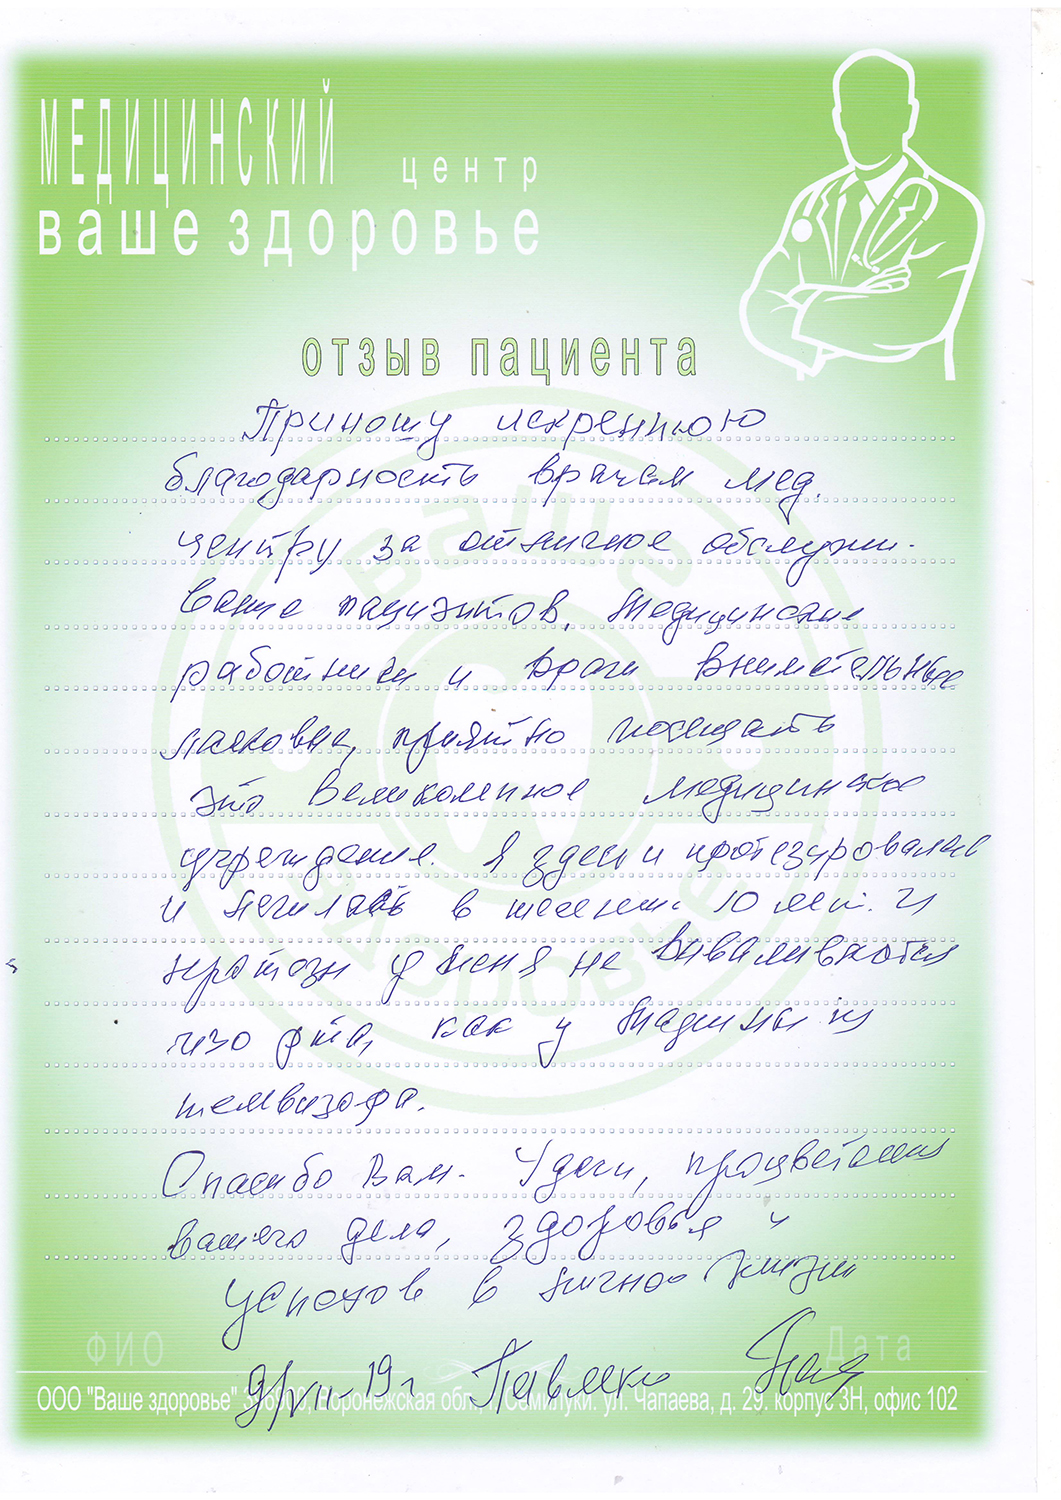 МЕДИЦИНСКИЙ центр
ваше здоровье
отзыв пациента
Приношу искреннюю
благодарность врачам мед.
центру за отличное обслужи-
вание пациэнтов. Медицинские
работники и врачи внимательные
ласковые, приятно посещать
это великолепное медицинское
учреждение. Я здесь и протезировалась
и лечилась в течении 10 лет. И
протезы у меня не вываливаются
изо рта, как у Мадши из
телевизора.
Спасибо Вам. Удачи, процветания
вашего дела, здоровья и
успехов в личной жизни
ФИО Дата
9/VII-19г Павленко
ООО "Ваше здоровье" 396900, Воронежская обл., г. Семилуки. ул. Чапаева, д. 29. корпус 3Н, офис 102